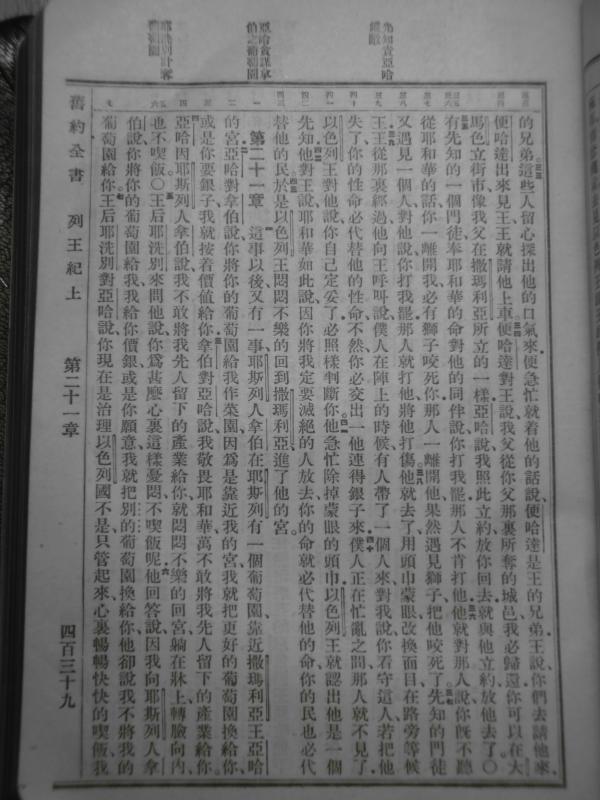 先知責亞哈
亞哈貪謀拿
伯之葡萄園
的兄弟這些人留心探出他的口氣來便急忙就着他的話說便哈達是王的兄弟王說你們去請他來
便哈達出來見王王就請他上車便哈達對王說我父從你父那裏所奪的城邑我必歸還你可以在大
馬色立街市像我父在撒瑪利亞所立的一樣亞哈說我照此立約放你回去就與他立約放他去了○
有先知的一個門徒奉耶和華的命對他的同伴說你打我罷那人不肯打他他就對那人說你旣不聽
從耶和華的話你一離開我必有獅子咬死你那人一離開他果然遇見獅子把他咬死了先知的門徒
又遇見一個人對他說你打我罷那人就打他將他打傷他就去了用頭巾蒙眼改換面目在路旁等候
王王從那裏經過他向王呼叫說僕人在陣上的時候有人帶了一個人來對我說你看守這人若把他
失了你的性命必代替他的性命不然你必交出一他連得銀子來僕人正在忙亂之間那人就不見了
以色列王對他說你自己定妥了必照樣判斷你他急忙除掉蒙眼的頭巾以色列王就認出他是一個
先知他對王說耶和華如此說因你將我定要滅絕的人放去你的命就必代替他的命你的民也必代
替他的民於是以色列王悶悶不樂的回到撒瑪利亞進了他的宮
第二十一章 這事以後又有一事耶斯列人拿伯在耶斯列有一個葡萄園靠近撒瑪利亞王亞哈
的宮亞哈對拿伯說你將你的葡萄園給我作菜園因爲是靠近我的宮我就把更好的葡萄園換給你
或是你要銀子我就按着價値給你拿伯對亞哈說我敬畏耶和華萬不敢將我先人留下的產業給你
亞哈因耶斯列人拿伯說我不敢將我先人留下的產業給你就悶悶不樂的回宮躺在牀上轉臉向內
也不喫飯○王后耶洗別來問他說你爲甚麼心裏這樣憂悶不喫飯呢他回答說因我向耶斯列人拿
伯說你將你的葡萄園給我我給你價銀或是你願意我就把別的葡萄園換給你他卻說我不將我的
葡萄園給你王后耶洗別對亞哈說你現在是治理以色列國不是只管起來心裏暢暢快快的喫飯我
舊約全書 列王紀上 第二十一章 四百三十九